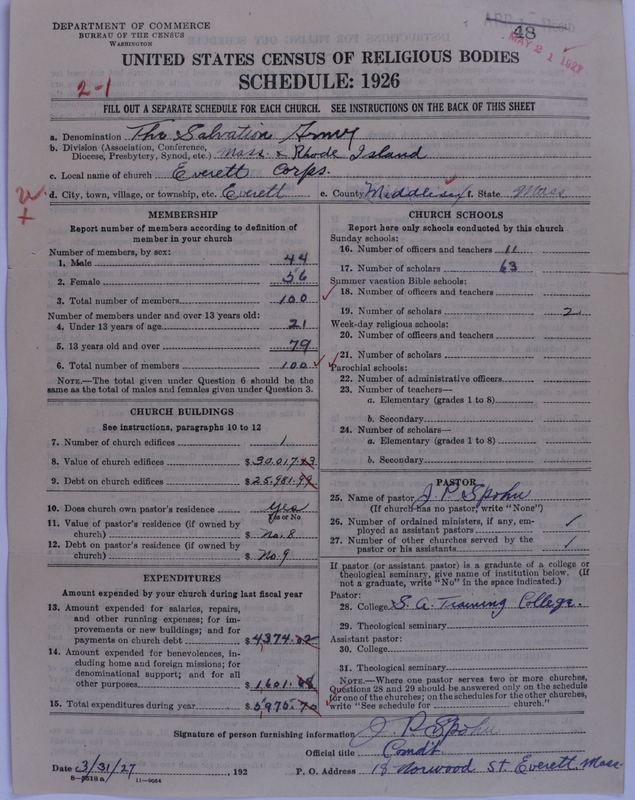 DEPARTMENT OF COMMERCE
BUREAU OF THE CENSUS
WASHINGTON
48
MAY 21 1927
UNITED STATES CENSUS OF RELIGIOUS BODIES
SCHEDULE: 1926
2-1
FILL OUT A SEPARATE SCHEDULE FOR EACH CHURCH. SEE INSTRUCTIONS ON THE BACK OF THIS SHEET
a. Denomination The Salvation Army
b. Division (Association, Conference, Diocese, Presbytery, Synod, etc.) Mass. & Rhode Island
c. Local name of church Everett Corps.
d. City, town, village, or township, etc. Everett e. County Middlesex f. State Mass
MEMBERSHIP
Report number of members according to definition of
member in your church
Number of members, by sex:
1. Male 44
2. Female 56
3. Total number of members 100
Number of members under and over 13 years old:
4. Under 13 years of age 21
5. 13 years old and over 79
6. Total number of members 100
NOTE.—The total given under Question 6 should be
same as the total of males and females given under Question 3.
CHURCH BUILDINGS
See instructions, paragraphs 10 to 12
7. Number of church edifices 1
8. Value of church edifices $30,017.23
9. Debt on church edifices $25,981.99
10. Does church own pastor's residence Yes
Yes or No
11. Value of pastor's residence (if owned by
church) $ No. 8
12. Debt on pastor's residence (if owned by
church) $ No. 9
EXPENDITURES
Amount expended by your church during last fiscal year
13. Amount expended for salaries, repairs,
and other running expenses; for im-
provements or new buildings; and for
payments on church debt $4374.02
14. Amount expended for benevolences, in-
cluding home and foreign missions; for
denominational support; and for all
other purposes $1,601.68
15. Total expenditures during year $5975.70
CHURCH SCHOOLS
Report here only schools conducted by this church
Sunday schools:
16. Number of officers and teachers 11
17. Number of scholars 63
Summer vacation Bible schools:
18. Number of officers and teachers
19. Number of scholars 2
Week-day religious schools:
20. Number of officers and teachers
21. Number of scholars
Parochial schools:
22. Number of administrative officers
23. Number of teachers—
a. Elementary (grades 1 to 8)
b. Secondary
24. Number of scholars—
a. Elementary (grades 1 to 8)
b. Secondary
PASTOR
25. Name of pastor J. P. Spohn
(If church has no pastor, write "None")
26. Number of ordained ministers, if any, em-
ployed as assistant pastors
27. Number of other churches served by the
pastor or his assistants
If pastor (or assistant pastor) is a graduate of a college or
theological seminary, give name of institution below. (If
not a graduate, write "No" in the space indicated.)
Pastor:
28. College S. A. Training College.
29. Theological seminary
Assistant pastor:
30. College
31. Theological seminary
NOTE.—Where one pastor serves two or more churches,
Questions 28 and 29 should be answered only on the schedule
for one of the churches; on the schedules for the other churches,
write "See schedule for church."
Signature of person furnishing information J. P. Spohn
Official title Comdt.
Date 3/31/27, 192 P. O. Address 18 Norwood St. Everett Mass.
11—9064